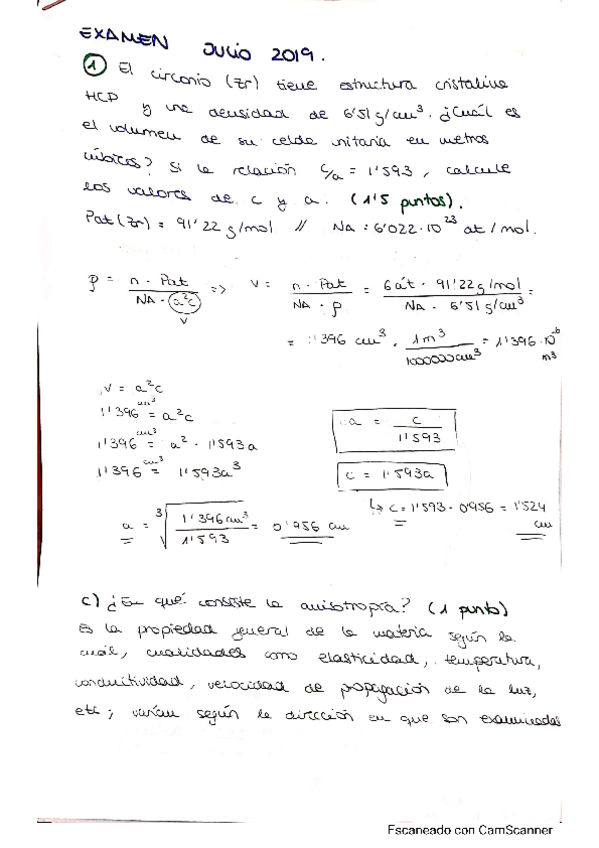 EXAMEN JULIO 2019.
① El circonio (Zr) tiene estructura cristalina
HCP y una densidad de 6'51 g/cm³. ¿Cuál es
el volumen de su celda unitaria en metros
cúbicos? Si la relación c/a = 1'593, calcule
los valores de c y a. (1'5 puntos).
Pat (Zr) = 91'22 g/mol // NA = 6'022·10²³ at/mol.
ρ = n · Pat / NA · a²c => V = n · Pat / NA · ρ = 6 át · 91'22 g/mol / NA · 6'51 g/cm³ =
V
= 1'396 cm³ · 1 m³ / 1000000 cm³ = 1'396·10⁻⁶ m³
V = a²c
1'396 cm³ = a²c
1'396 cm³ = a² · 1'593a
1'396 cm³ = 1'593a³
a = c / 1'593
c = 1'593a
a = ³√(1'396 cm³ / 1'593) = 0'956 cm
↳ c = 1'593 · 0'956 = 1'524 cm
c) ¿En qué consiste la anisotropía? (1 punto)
Es la propiedad general de la materia según la
cuál, cualidades como elasticidad, temperatura,
conductividad, velocidad de propagación de la luz,
etc; varían según la dirección en que son examinadas
Escaneado con CamScanner